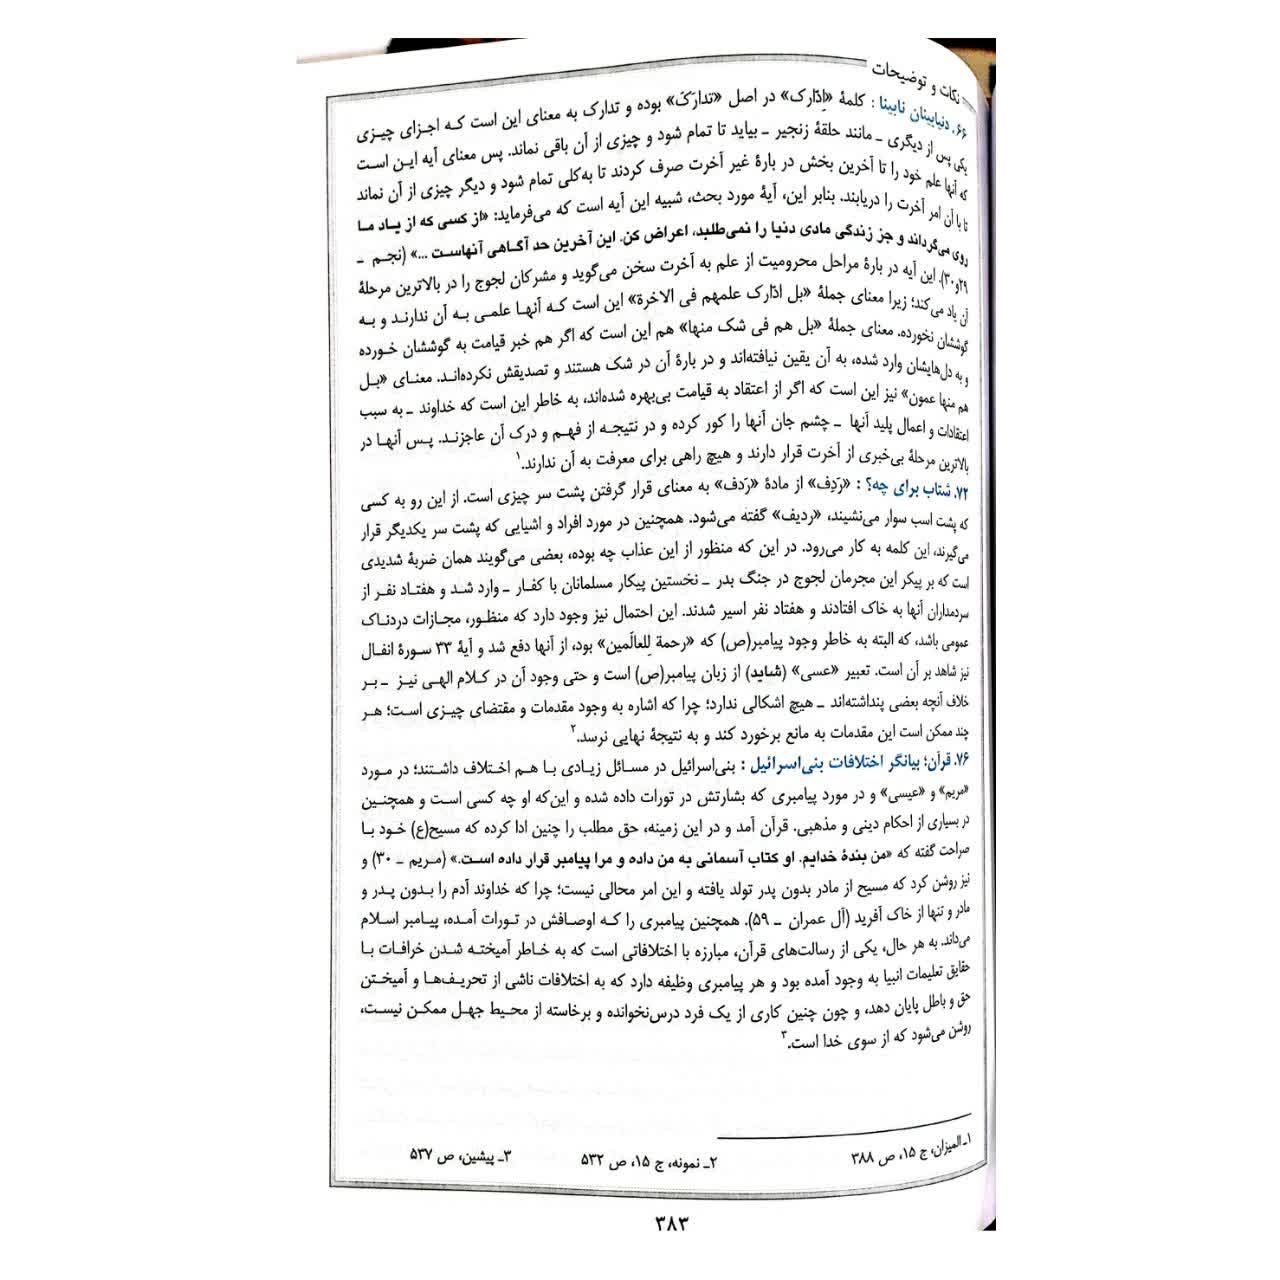 نکات و توضیحات
۶۶. دنیابینان نابینا : کلمهٔ «اِدّارک» در اصل «تدارَکَ» بوده و تدارک به معنای این است که اجزای چیزی
یکی پس از دیگری ـ مانند حلقهٔ زنجیر ـ بیاید تا تمام شود و چیزی از آن باقی نماند. پس معنای آیه این است
که آنها علم خود را تا آخرین بخش در بارهٔ غیر آخرت صرف کردند تا به‌کلی تمام شود و دیگر چیزی از آن نماند
تا با آن امر آخرت را دریابند. بنابر این، آیهٔ مورد بحث، شبیه این آیه است که می‌فرماید: «از کسی که از یاد ما
روی می‌گرداند و جز زندگی مادی دنیا را نمی‌طلبد، اعراض کن. این آخرین حد آگاهی آنهاست ...» (نجم ـ
۲۹و۳۰). این آیه در بارهٔ مراحل محرومیت از علم به آخرت سخن می‌گوید و مشرکان لجوج را در بالاترین مرحلهٔ
آن یاد می‌کند؛ زیرا معنای جملهٔ «بل ادّارک علمهم فی الاخرة» این است که آنها علمی به آن ندارند و به
گوششان نخورده. معنای جملهٔ «بل هم فی شک منها» هم این است که اگر هم خبر قیامت به گوششان خورده
و به دل‌هایشان وارد شده، به آن یقین نیافته‌اند و در بارهٔ آن در شک هستند و تصدیقش نکرده‌اند. معنای «بل
هم منها عمون» نیز این است که اگر از اعتقاد به قیامت بی‌بهره شده‌اند، به خاطر این است که خداوند ـ به سبب
اعتقادات و اعمال پلید آنها ـ چشم جان آنها را کور کرده و در نتیجه از فهم و درک آن عاجزند. پس آنها در
بالاترین مرحلهٔ بی‌خبری از آخرت قرار دارند و هیچ راهی برای معرفت به آن ندارند.۱
۷۲. شتاب برای چه؟ : «رَدِف» از مادهٔ «رَدف» به معنای قرار گرفتن پشت سر چیزی است. از این رو به کسی
که پشت اسب سوار می‌نشیند، «ردیف» گفته می‌شود. همچنین در مورد افراد و اشیایی که پشت سر یکدیگر قرار
می‌گیرند، این کلمه به کار می‌رود. در این که منظور از این عذاب چه بوده، بعضی می‌گویند همان ضربهٔ شدیدی
است که بر پیکر این مجرمان لجوج در جنگ بدر ـ نخستین پیکار مسلمانان با کفار ـ وارد شد و هفتاد نفر از
سردمداران آنها به خاک افتادند و هفتاد نفر اسیر شدند. این احتمال نیز وجود دارد که منظور، مجازات دردناک
عمومی باشد، که البته به خاطر وجود پیامبر(ص) که «رحمة لِلعالَمین» بود، از آنها دفع شد و آیهٔ ۳۳ سورهٔ انفال
نیز شاهد بر آن است. تعبیر «عسی» (شاید) از زبان پیامبر(ص) است و حتی وجود آن در کلام الهی نیز ـ بر
خلاف آنچه بعضی پنداشته‌اند ـ هیچ اشکالی ندارد؛ چرا که اشاره به وجود مقدمات و مقتضای چیزی است؛ هر
چند ممکن است این مقدمات به مانع برخورد کند و به نتیجهٔ نهایی نرسد.۲
۷۶. قرآن؛ بیانگر اختلافات بنی‌اسرائیل : بنی‌اسرائیل در مسائل زیادی با هم اختلاف داشتند؛ در مورد
«مریم» و «عیسی» و در مورد پیامبری که بشارتش در تورات داده شده و این‌که او چه کسی است و همچنین
در بسیاری از احکام دینی و مذهبی. قرآن آمد و در این زمینه، حق مطلب را چنین ادا کرده که مسیح(ع) خود با
صراحت گفته که «من بندهٔ خدایم. او کتاب آسمانی به من داده و مرا پیامبر قرار داده است.» (مریم ـ ۳۰) و
نیز روشن کرد که مسیح از مادر بدون پدر تولد یافته و این امر محالی نیست؛ چرا که خداوند آدم را بدون پدر و
مادر و تنها از خاک آفرید (آل عمران ـ ۵۹). همچنین پیامبری را که اوصافش در تورات آمده، پیامبر اسلام
می‌داند. به هر حال، یکی از رسالت‌های قرآن، مبارزه با اختلافاتی است که به خاطر آمیخته شدن خرافات با
حقایق تعلیمات انبیا به وجود آمده بود و هر پیامبری وظیفه دارد که به اختلافات ناشی از تحریف‌ها و آمیختن
حق و باطل پایان دهد، و چون چنین کاری از یک فرد درس‌نخوانده و برخاسته از محیط جهل ممکن نیست،
روشن می‌شود که از سوی خدا است.۳
۱ـ المیزان، ج ۱۵، ص ۳۸۸ ۲ـ نمونه، ج ۱۵، ص ۵۳۲ ۳ـ پیشین، ص ۵۳۷
۳۸۳